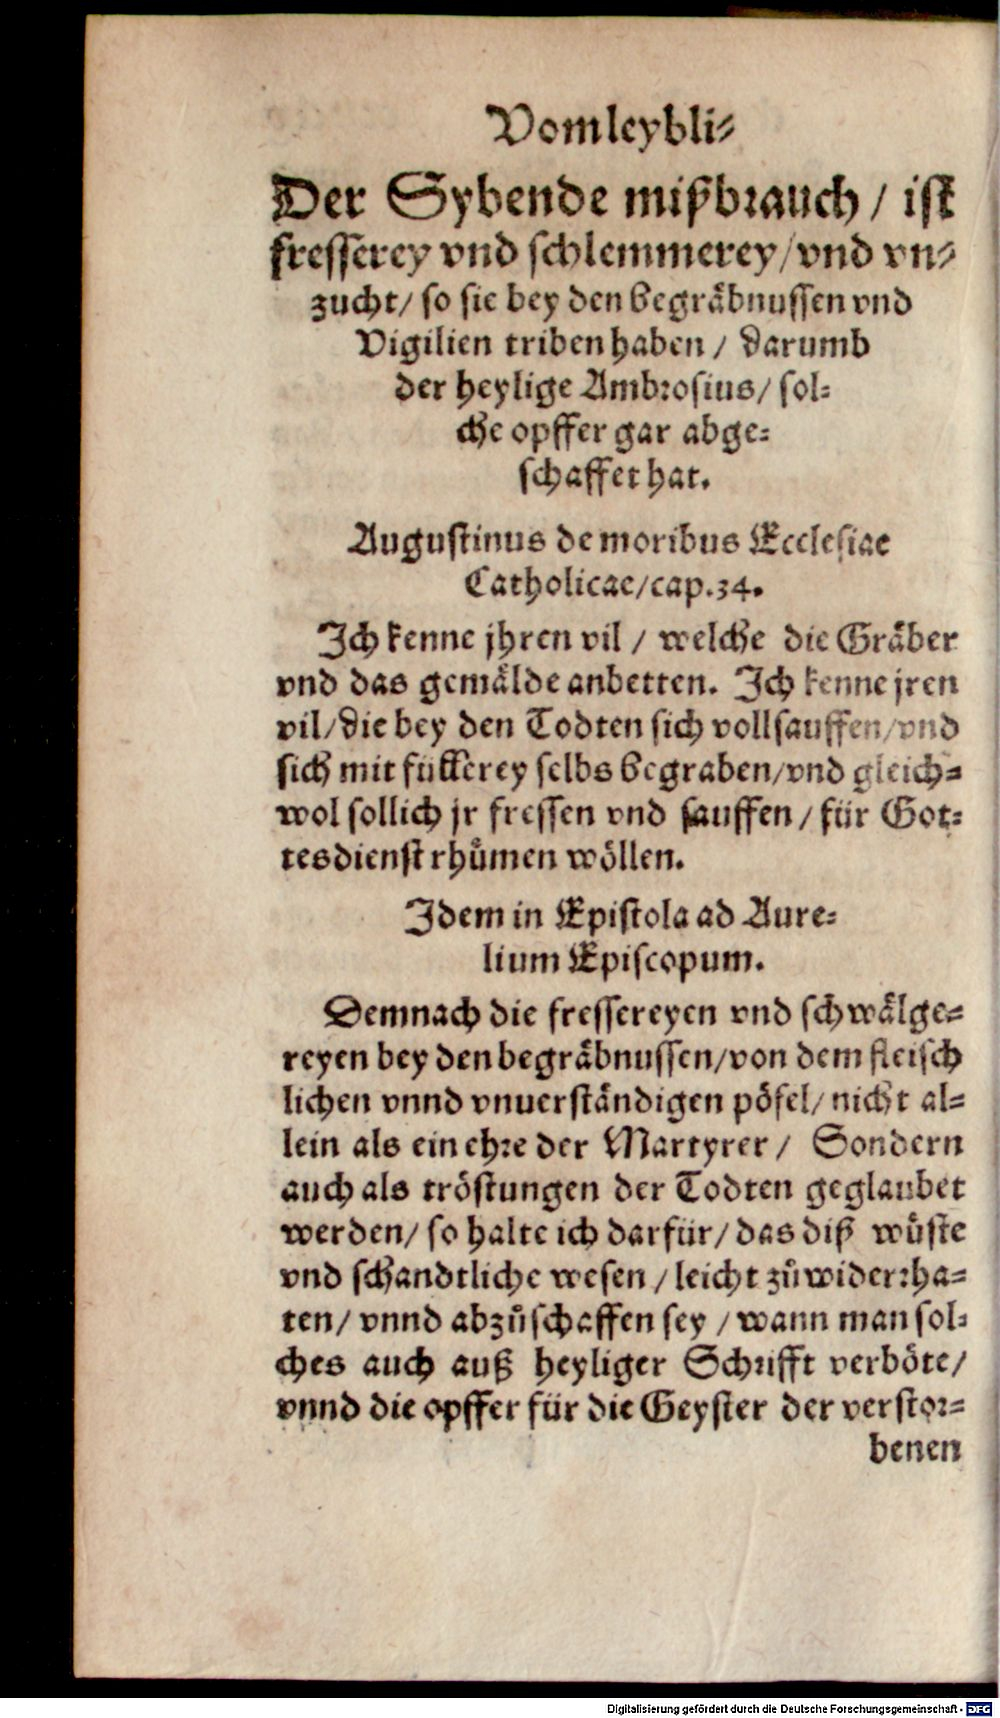 Vom leybli-
Der Sybende mißbrauch / ist
fresserey vnd schlemmerey / vnd vn-
zucht / so sie bey den begräbnussen vnd
Vigilien triben haben / darumb
der heylige Ambrosius / sol-
che opffer gar abge-
schaffet hat.
Augustinus de moribus Ecclesiae
Catholicae / cap. 34.
Ich kenne jhren vil / welche die Gräber
vnd das gemälde anbetten. Ich kenne jren
vil / die bey den Todten sich vollsauffen / vnd
sich mit füllerey selbs begraben / vnd gleich-
wol sollich jr fressen vnd sauffen / für Got-
tesdienst rhůmen wöllen.
Idem in Epistola ad Aure-
lium Episcopum.
Demnach die fressereyen vnd schwälge-
reyen bey den begräbnussen / von dem fleisch
lichen vnnd vnuerständigen pöfel / nicht al-
lein als ein ehre der Martyrer / Sondern
auch als tröstungen der Todten geglaubet
werden / so halte ich darfür / das diß wůste
vnd schandtliche wesen / leicht zů widerrha-
ten / vnnd abzůschaffen sey / wann man sol-
ches auch auß heyliger Schrifft verböte /
vnnd die opffer für die Geyster der verstor-
benen
Digitalisierung gefördert durch die Deutsche Forschungsgemeinschaft - DFG